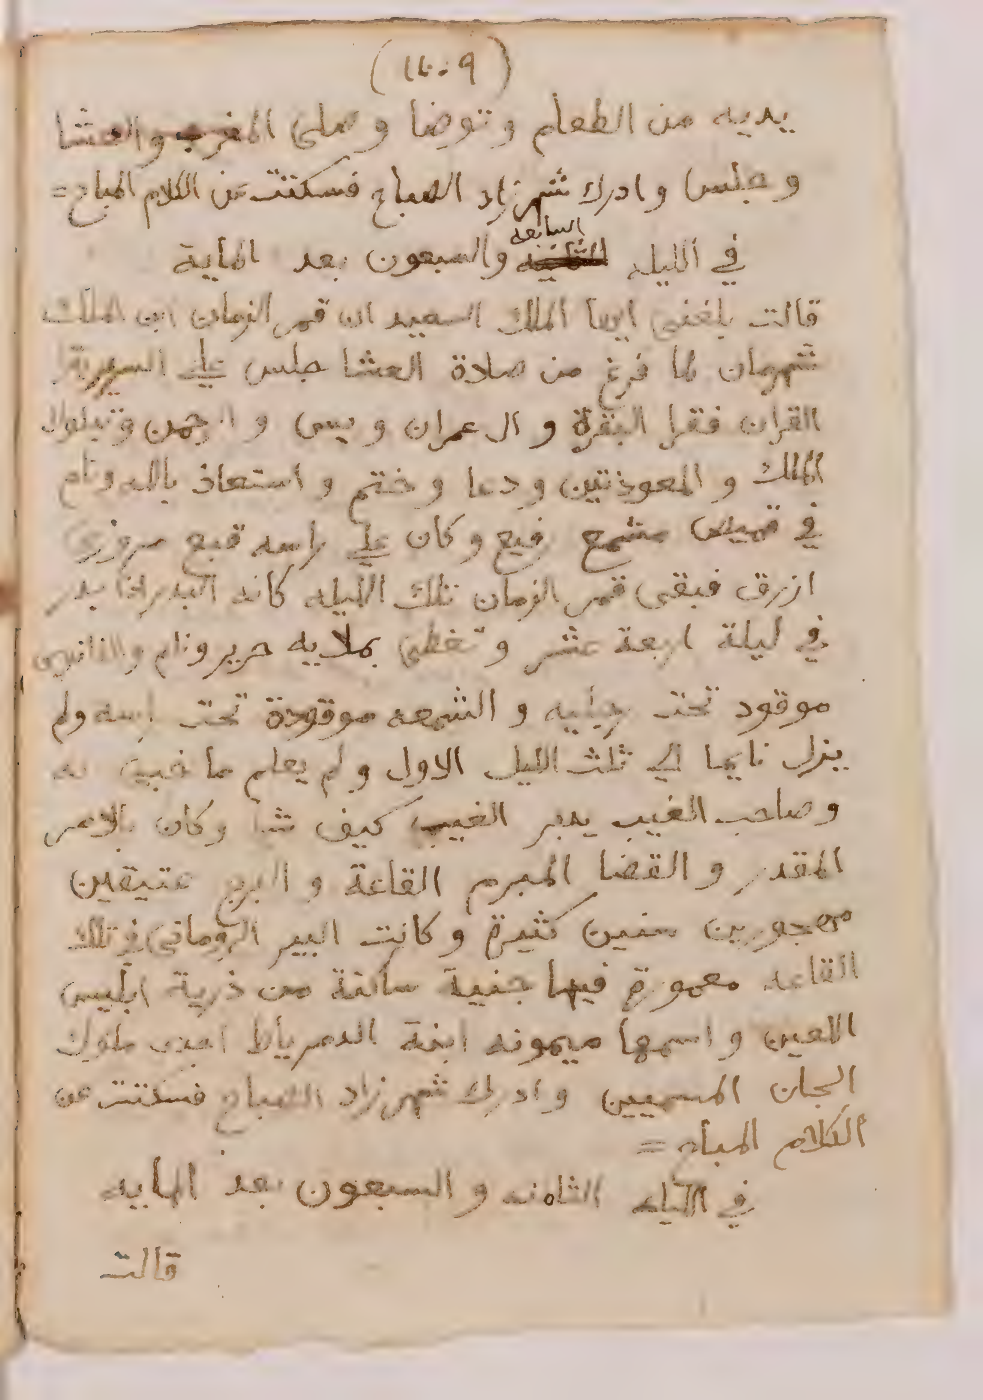 يديه من الطعام وتوضا وصلى المغرب والعشا
وجلس وادرك شهرزاد الصباح فسكتت عن الكلام المباح =
في الليله السابعه والسبعون بعد الماية
قالت بلغني ايها الملك السعيد ان قمر الزمان ابن الملك
شهرمان لما فرغ من صلاة العشا جلس علي السرير
القران فقرا البقرة وال عمران ويس والرحمن وتبارك
الملك والمعوذتين ودعا وختم واستعاذ بالله ونام
في قميص مشمع رفيع وكان علي راسه قبع مروزي
ازرق فبقى قمر الزمان تلك الليله كانه البدر اذا بدر
في ليلة اربعة عشر وتغطى بملايه حرير ونام والفانوس
موقود تحت رجليه والشمعه موقودة تحت راسه ولم
يزل نايما الي ثلث الليل الاول ولم يعلم ما خبي له
وصاحب الغيب يدبر الغيب كيف شا وكان بالامر
المقدر والقضا المبرم القاعة والبرج عتيقين
مهجورين سنين كثيرة وكانت البير الروماني في تلك
القاعه معمورة فيها جنية ساكنة من ذرية ابليس
اللعين واسمها ميمونه ابنة الدمرياط احدى ملوك
الجان المسميين وادرك شهرزاد الصباح فسكتت عن
الكلام المباح =
في الليله الثامنه والسبعون بعد المايه
قالت